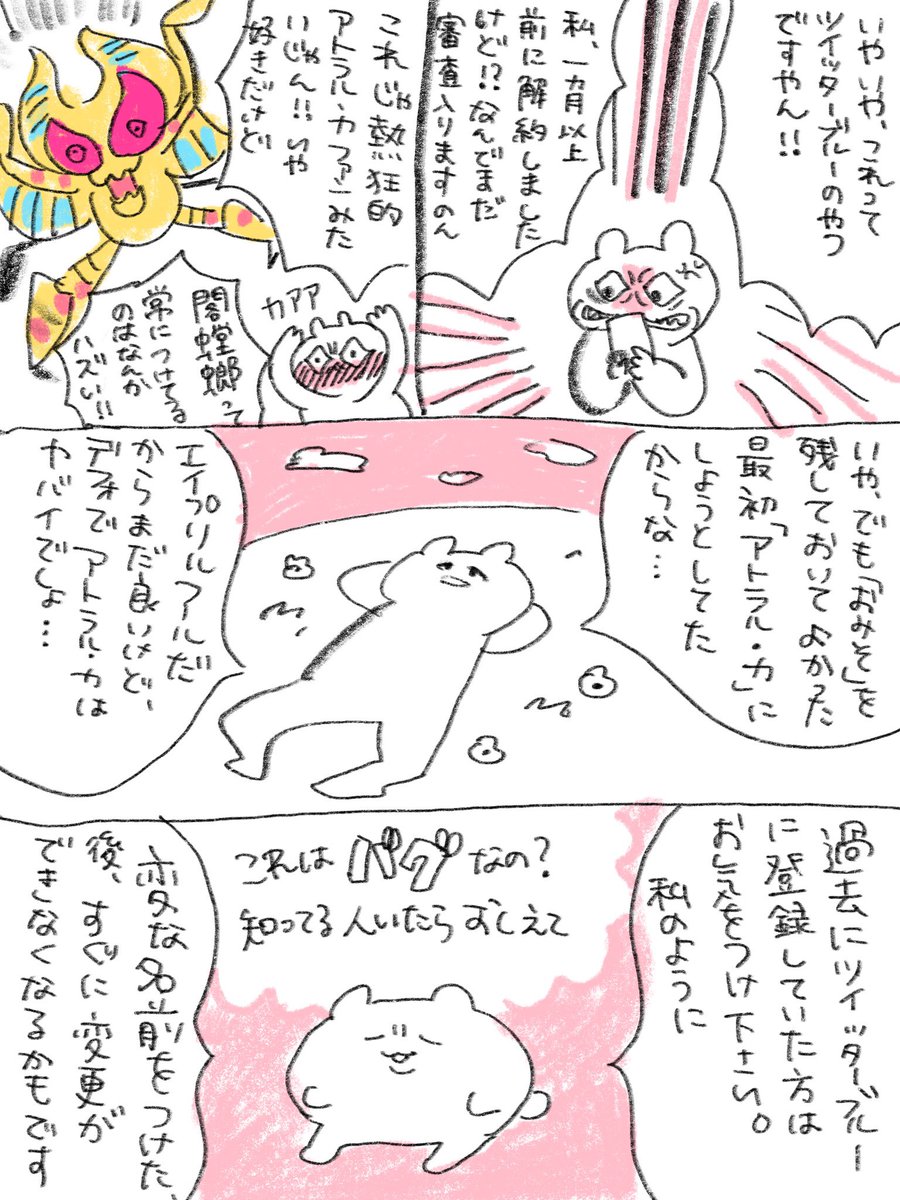 いやいや、これって
ツイッターブルーのやつ
ですやん!!
私、一カ月以上
前に解約しました
けど!?なんでまだ
審査入りますのん
これじゃ熱狂的
アトラル・カファンみた
いじゃん!!いや
好きだけど
カアアア
閣螳螂って
常につけてる
のはなんか
ハズい!!
いや、でも「おみそ」を
残しておいてよかった
最初「アトラル・カ」に
しようとしてた
からな…
エイプリルフールだ
からまだ良いけど、
デフォでアトラル・カは
ヤバイでしょ…
過去にツイッターブルー
に登録していた方は
お気をつけ下さい。
私のように
これはバグなの?
知ってる人いたらおしえて
変な名前をつけた
後、すぐに変更が
できなくなるかもです